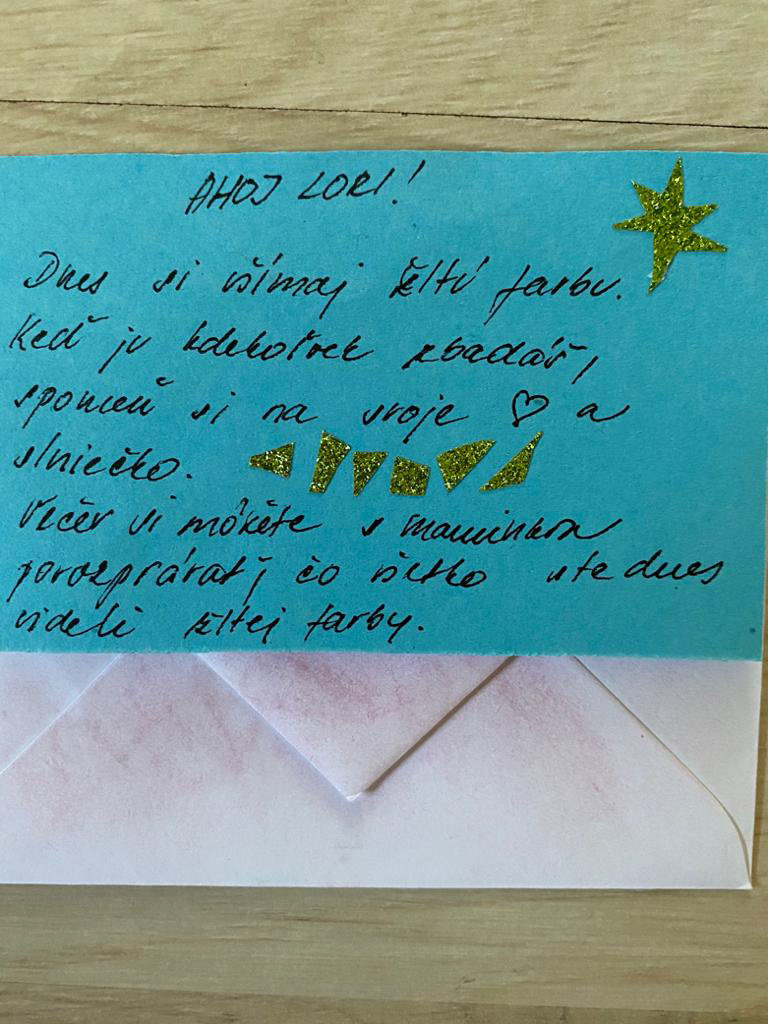 AHOJ LORI!
Dnes si všímaj žltú farbu.
Keď ju kdekoľvek zbadáš,
spomeň si na svoje ♡ a
slniečko.
Večer si môžete s maminkou
porozprávať, čo všetko ste dnes
videli žltej farby.